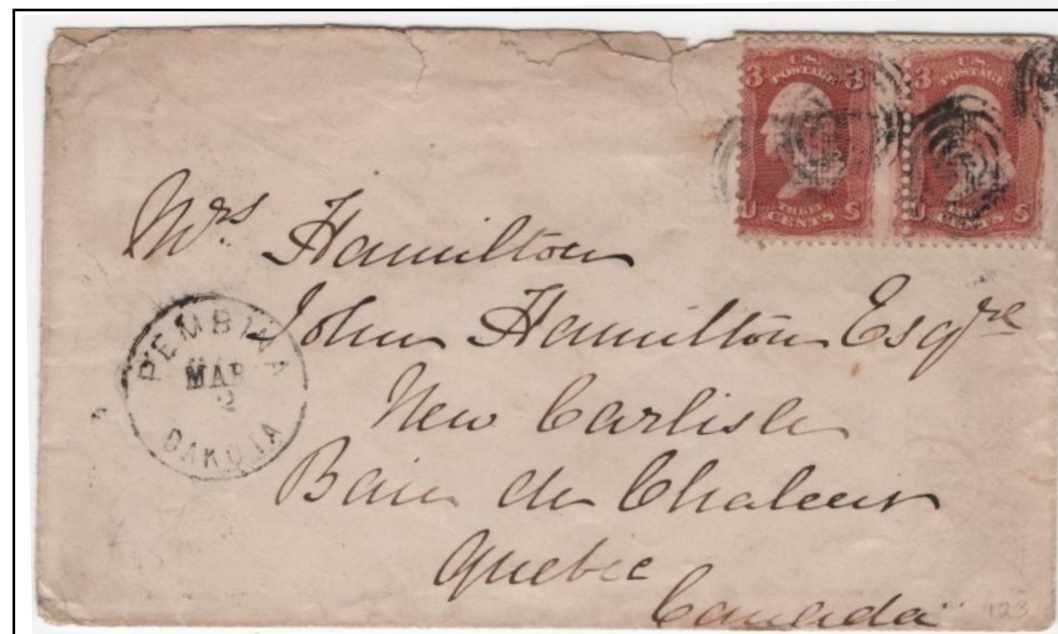 3 U.S. POSTAGE 3
U THREE CENTS S
3 U.S. POSTAGE 3
U THREE CENTS S
Mrs Hamilton
John Hamilton Esqre
New Carlisle
Baie de Chaleur
Quebec
Canada
PEMBINA
MAR
2
DAKOTA
123